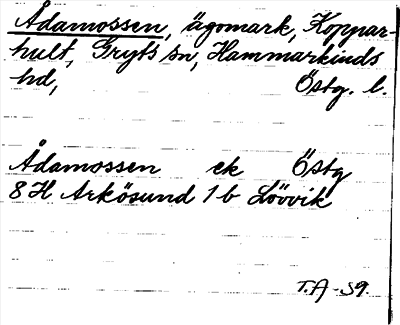 Ådamossen, ägomark, Koppar-
hult, Gryts sn, Hammarkinds
hd, Östg. l.
Ådamossen ek Östg
8H Arkösund 1b Lövvik
T.A -39.